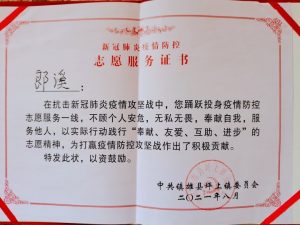 新冠肺炎疫情防控
志愿服务证书
郎溪：
在抗击新冠肺炎疫情攻坚战中，您踊跃投身疫情防控
志愿服务一线，不顾个人安危，无私无畏，奉献自我，服
务他人，以实际行动践行“奉献、友爱、互助、进步”的
志愿精神，为打赢疫情防控攻坚战作出了积极贡献。
特发此状，以资鼓励。
中共镇雄县坪上镇委员会
二〇二一年八月